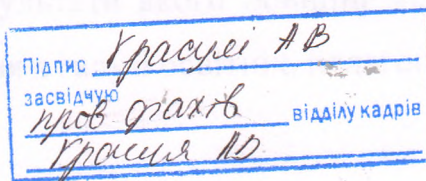 Підпис Красулі А В
засвідчую
пров фахів відділу кадрів
Красуля